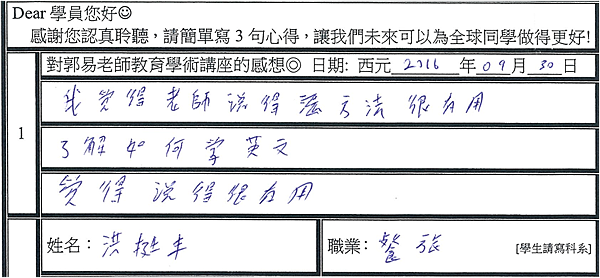 Dear 學員您好☺
感謝您認真聆聽，請簡單寫 3 句心得，讓我們未來可以為全球同學做得更好!
對郭易老師教育學術講座的感想◎ 日期: 西元 2016 年 09 月 30 日
1
我覺得老師说得 方法很有用
了解如何学英文
覺得说得很有用
姓名： 洪挺丰 職業： 餐旅 [學生請寫科系]